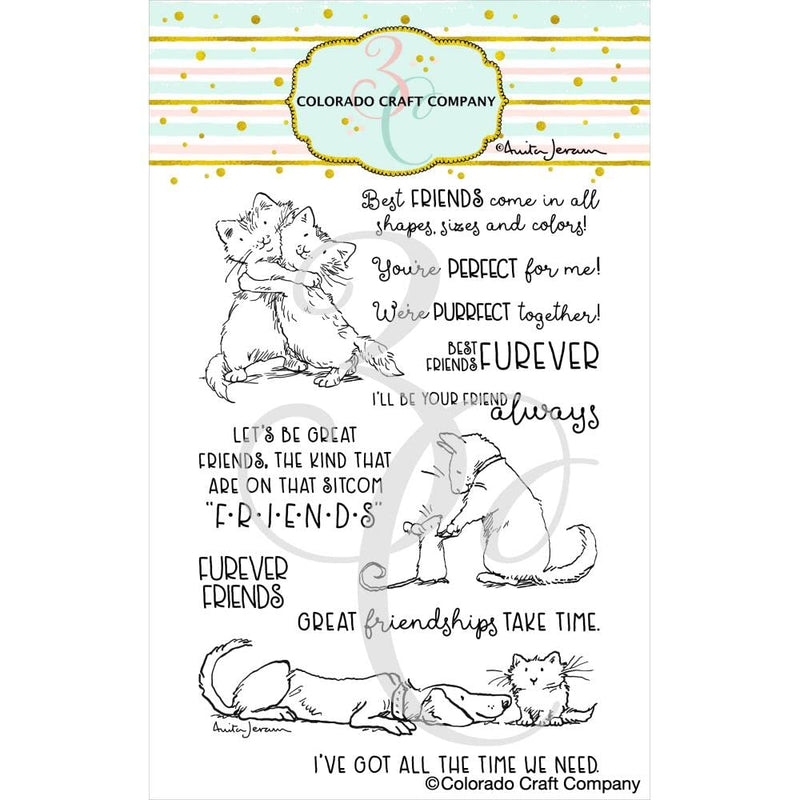 3C
COLORADO CRAFT COMPANY
©Anita Jeram
Best FRIENDS come in all
shapes, sizes and colors!
You're PERFECT for me!
We're PURRFECT together!
BEST
FRIENDS FUREVER
I'LL BE YOUR FRIEND always
LET'S BE GREAT
FRIENDS, THE KIND THAT
ARE ON THAT SITCOM
"F•R•I•E•N•D•S"
FUREVER
FRIENDS
GREAT friendships TAKE TIME.
Anita Jeram
I'VE GOT ALL THE TIME WE NEED.
©Colorado Craft Company
3C